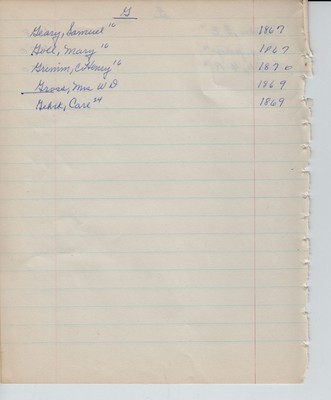 G
Geary, Samuel 16 1867
Goll, Mary 16 1867
Grimm, C. Henry 16 1870
Gross, Mrs W D 1869
Carl 24 1869